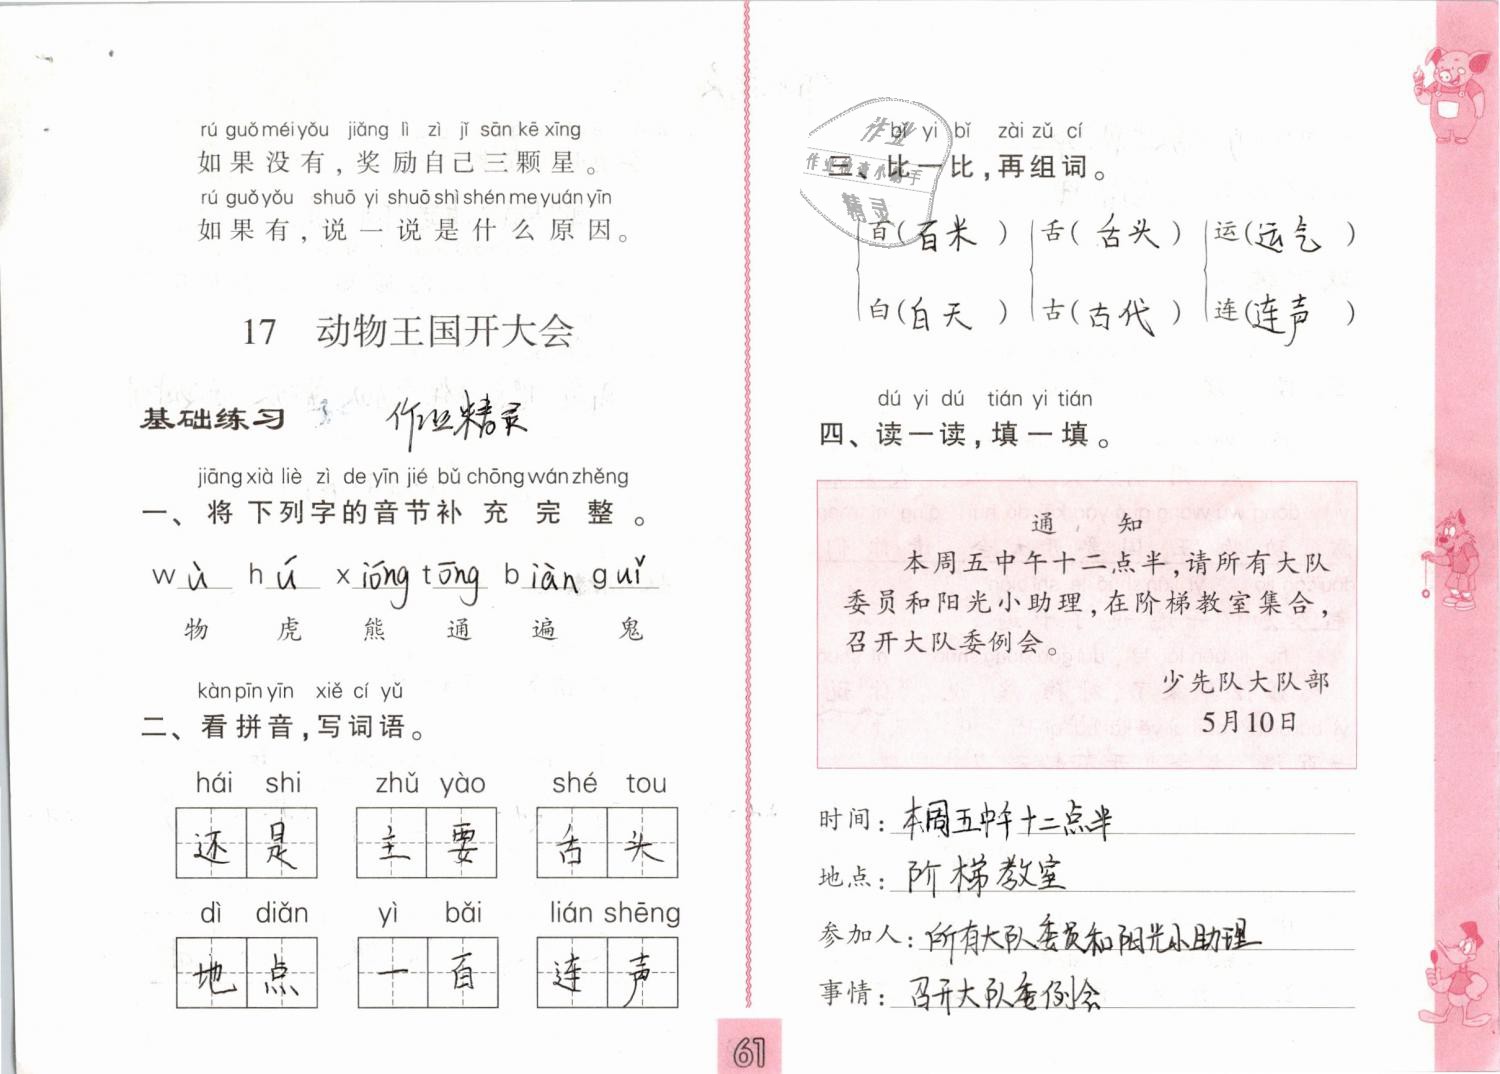 rú guǒ méi yǒu jiǎng lì zì jǐ sān kē xīng
如果没有，奖励自己三颗星。
rú guǒ yǒu shuō yi shuō shì shén me yuán yīn
如果有，说一说是什么原因。
17 动物王国开大会
基础练习 作业精灵
jiāng xià liè zì de yīn jié bǔ chōng wán zhěng
一、将下列字的音节补充完整。
wù hǔ xióng tōng biàn guǐ
物 虎 熊 通 遍 鬼
kàn pīn yīn xiě cí yǔ
二、看拼音，写词语。
hái shi zhǔ yào shé tou
还是 主要 舌头
dì diǎn yì bǎi lián shēng
地点 一百 连声
bǐ yi bǐ zài zǔ cí
三、比一比，再组词。
作业
作业检查小帮手
精灵
百(百米) 舌(舌头) 运(运气)
白(白天) 古(古代) 连(连声)
dú yi dú tián yi tián
四、读一读，填一填。
通 知
本周五中午十二点半，请所有大队
委员和阳光小助理，在阶梯教室集合，
召开大队委例会。
少先队大队部
5月10日
时间：本周五中午十二点半
地点：阶梯教室
参加人：所有大队委员和阳光小助理
事情：召开大队委例会
61